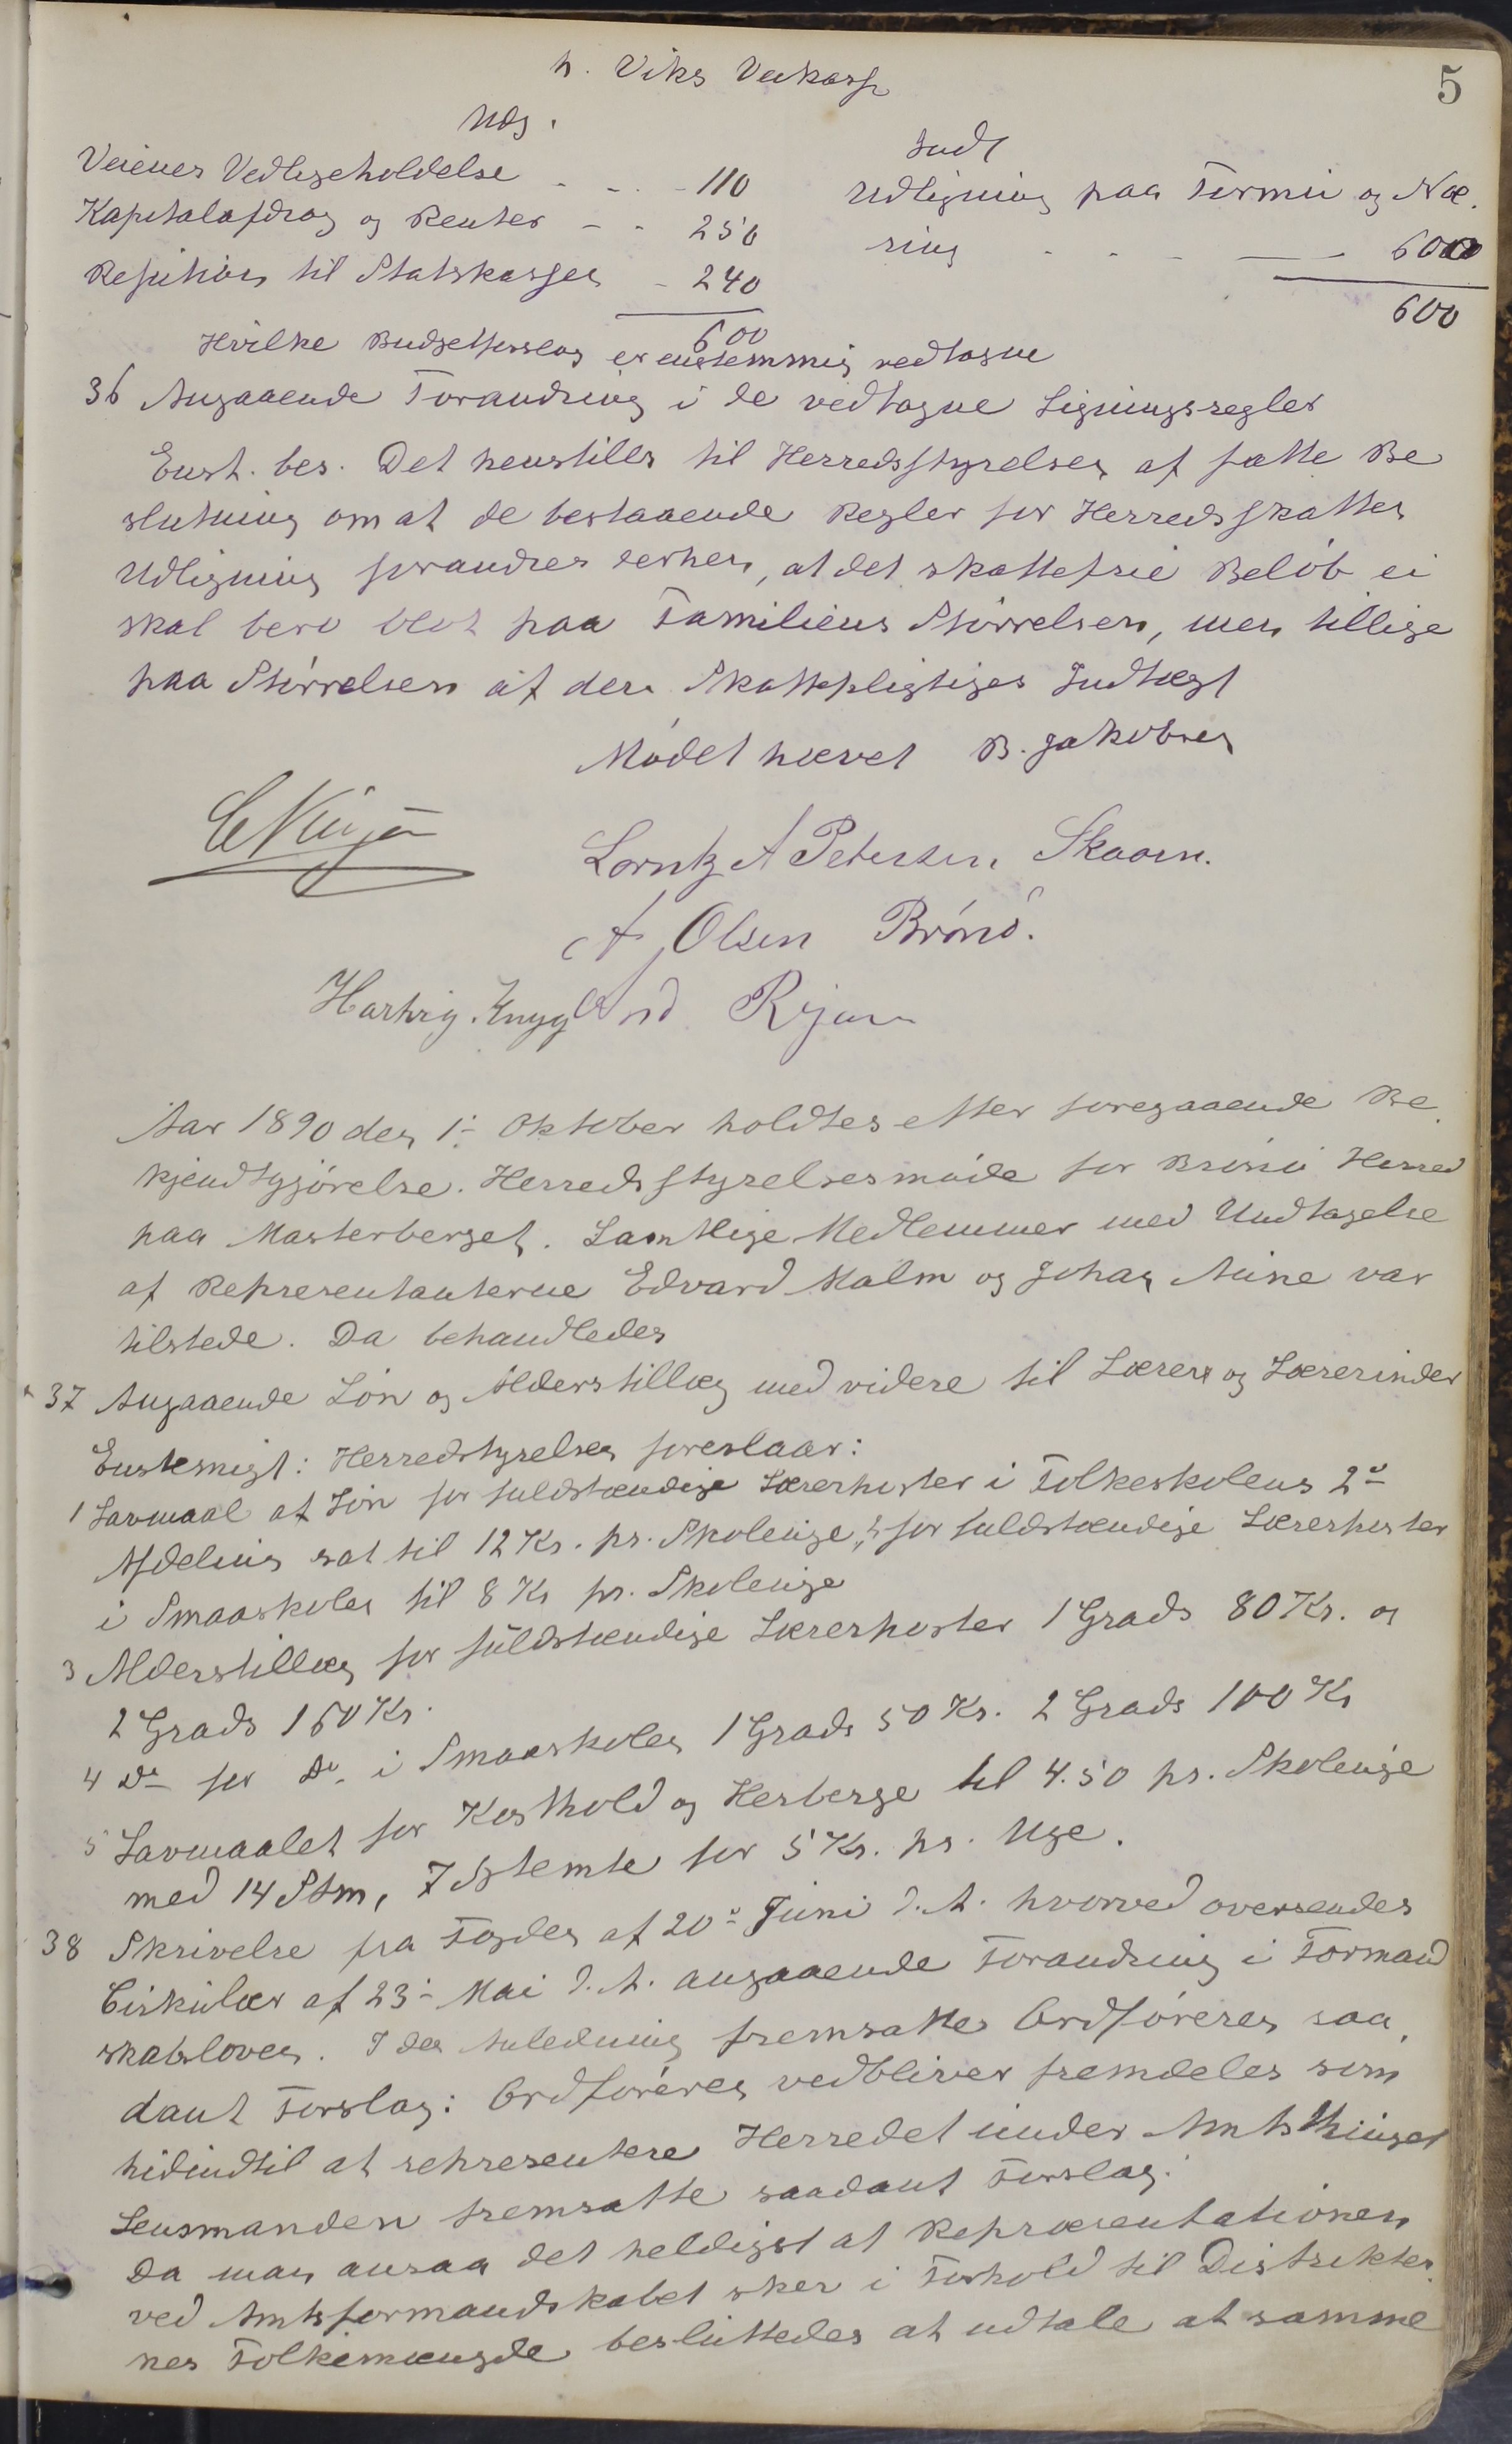 5
h. Viks Veikasse
Udg.
Indt
Veienes Vedligeholdelse - - - 110
Udligning paa Formue og Næ-
Kapitalafdrag og Renter - - 250
ring - - - - 600
Refusion til Statskassen - 240
600
600
Hvilke Budgetforslag er enstemmig vedtagne
36 Angaaende Forandring i de vedtagne Ligningsregler
Enst. bes. Det henstilles til Herredsstyrelsen at fatte Be
slutning om at de bestaaende Regler for Herredsskattens
Udligning forandres derhen, at det skattefrie Beløb ei
skal bero blot paa Familiens Størrelse, men tillige
paa Størrelsen af den Skattepligtiges Indtægt
Mødet hævet B. Jakobsen
Lorntz A Petersen Skaaen.
A Olsen Brønø.
Hartvig
Aar 1890 den 1- Oktober holdtes efter foregaaende Be
kjendtgjørelse. Herredsstyrelsesmøde for Brønø Herred
paa Masterberget. Samtlige Medlemmer med Undtagelse
af Representanterne Edvard Malm og Johan Aune var
tilstede. Da behandledes
37 Angaaende Løn og Alderstillæg med videre til Lærere og Lærerinder
Enstemigt: Herredstyrelsen foreslaar:
1 Lavmaal af Løn for fuldstændige Lærerposter i Folkeskolens 2-
Afdeling sat til 12 Kr. pr. Skoleuge, 2 for fuldstændige Lærerposter
i Smaaskolen til 8 Kr pr. Skoleuge
3 Alderstillæg for fuldstændige Lærerposter 1 Grads 80 Kr. og
2 Grads 160 Kr.
4 Do for Do i Smaaskolen 1 Grads 50 Kr. 2 Grads 100 Kr
5 Lavmaalet for Kosthold og Herberge til 4.50 pr. Skoleuge
med 14 Stm, 7 Stemte for 5 Kr. pr. Uge.
38 Skrivelse fra Fogden af 20- Juni d. A. hvorved oversendes
Cirkulær af 23- Mai d. A. angaaende Forandring i Formand
skabsloven. I den Anledning fremsatte Ordføreren saa
dant Forslag: Ordføreren vedbliver fremdeles som
hidindtil at representere Herredet under Amtsthinget
Lensmanden fremsatte saadant Forslag:
Da man ansaa det heldigst at Repræsentationen
ved Amtsformandskabet sker i Forhold til Distrikter
nes Folkemængde besluttedes at udtale at samme